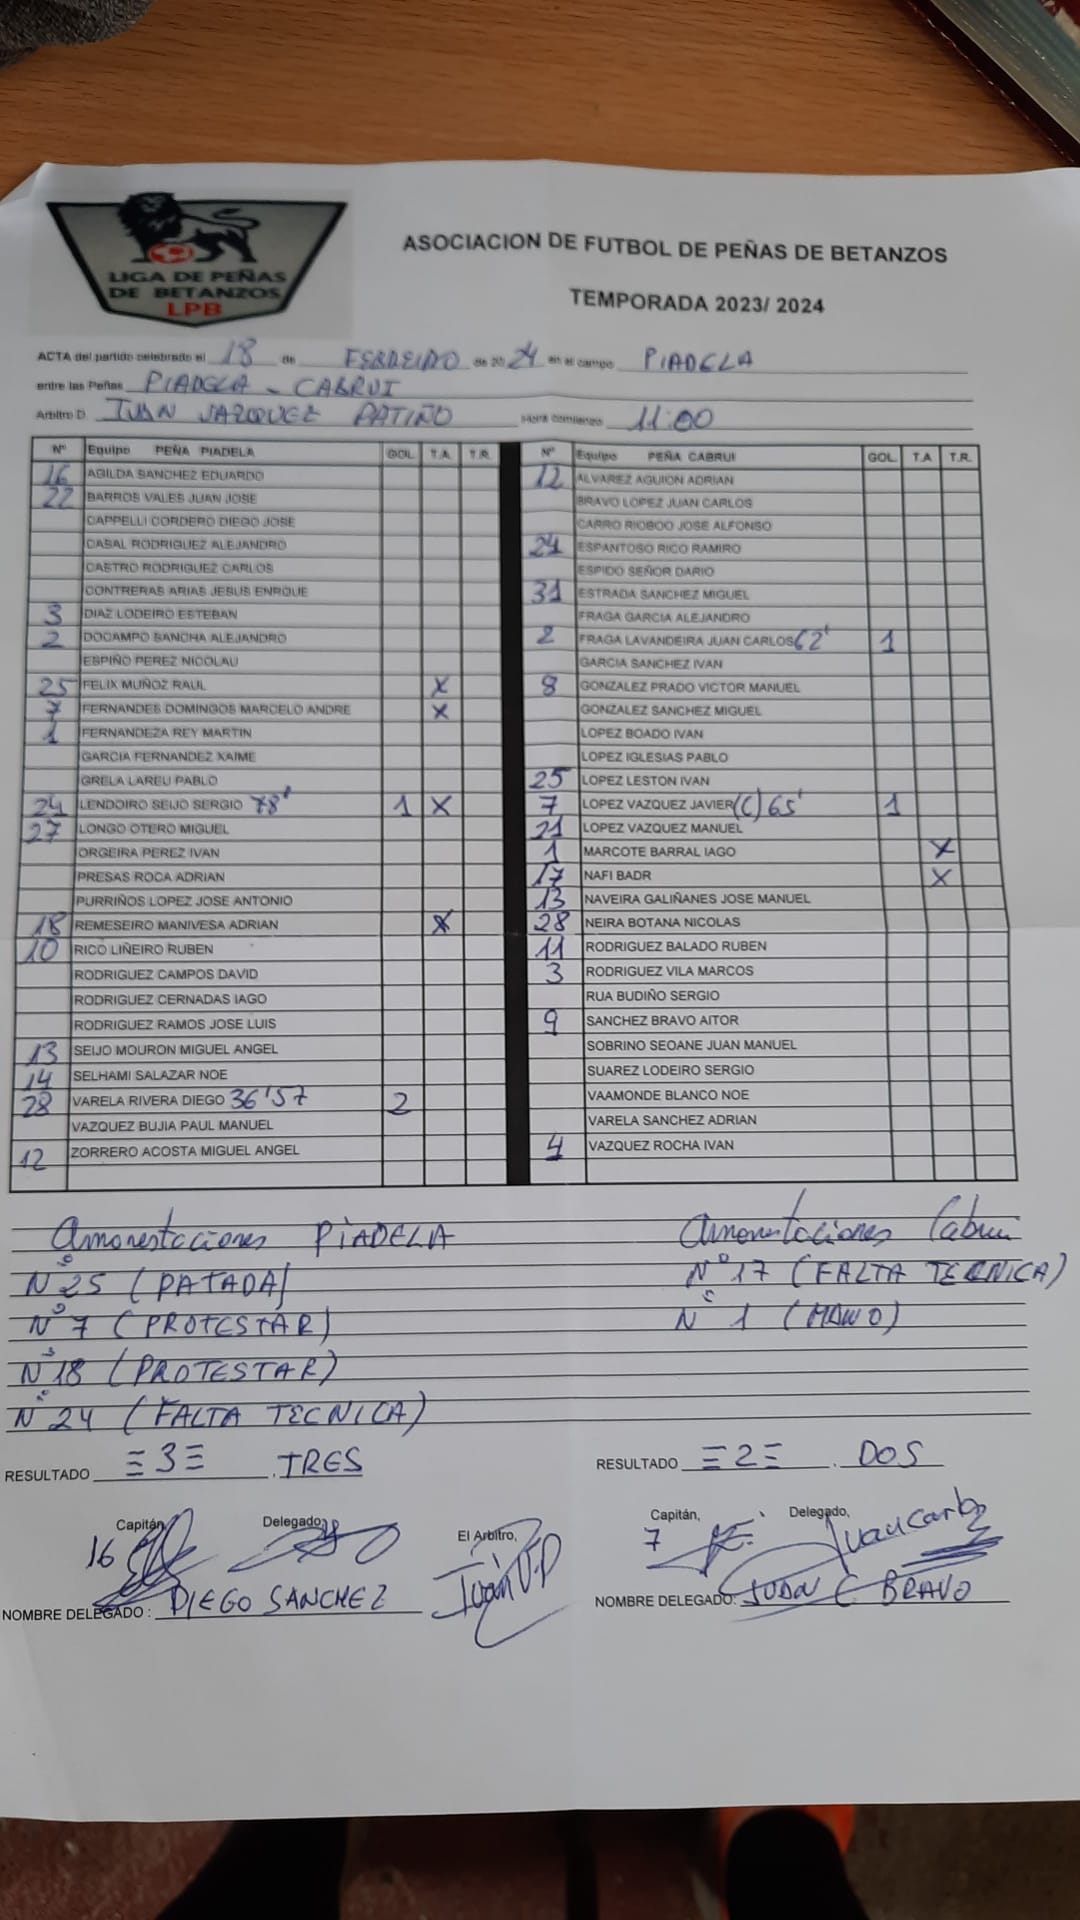 LIGA DE PEÑAS
DE BETANZOS
LPB
ASOCIACION DE FUTBOL DE PEÑAS DE BETANZOS
TEMPORADA 2023/ 2024
ACTA del partido celebrado el 18 de FEBREIRO de 20 24 en el campo PIADELA
entre las Peñas PIADELA - CABRUI
Arbitro D. IVAN VAZQUEZ PATIÑO Hora comienzo 11:00
Nº Equipo PEÑA PIADELA GOL T.A. T.R. Nº Equipo PEÑA CABRUI GOL T.A T.R.
16 AGILDA SANCHEZ EDUARDO 12 ALVAREZ AGUION ADRIAN
22 BARROS VALES JUAN JOSE BRAVO LOPEZ JUAN CARLOS
CAPPELLI CORDERO DIEGO JOSE CARRO RIOBOO JOSE ALFONSO
CASAL RODRIGUEZ ALEJANDRO 24 ESPANTOSO RICO RAMIRO
CASTRO RODRIGUEZ CARLOS ESPIDO SEÑOR DARIO
CONTRERAS ARIAS JESUS ENRIQUE 31 ESTRADA SANCHEZ MIGUEL
3 DIAZ LODEIRO ESTEBAN FRAGA GARCIA ALEJANDRO
2 DOCAMPO SANCHA ALEJANDRO 2 FRAGA LAVANDEIRA JUAN CARLOS 62' 1
ESPIÑO PEREZ NICOLAU GARCIA SANCHEZ IVAN
25 FELIX MUÑOZ RAUL X 8 GONZALEZ PRADO VICTOR MANUEL
7 FERNANDES DOMINGOS MARCELO ANDRE X GONZALEZ SANCHEZ MIGUEL
1 FERNANDEZA REY MARTIN LOPEZ BOADO IVAN
GARCIA FERNANDEZ XAIME LOPEZ IGLESIAS PABLO
GRELA LAREU PABLO 25 LOPEZ LESTON IVAN
24 LENDOIRO SEIJO SERGIO 78' 1 X 7 LOPEZ VAZQUEZ JAVIER (C) 65' 1
27 LONGO OTERO MIGUEL 21 LOPEZ VAZQUEZ MANUEL
ORGEIRA PEREZ IVAN 1 MARCOTE BARRAL IAGO X
PRESAS ROCA ADRIAN 17 NAFI BADR X
PURRIÑOS LOPEZ JOSE ANTONIO 13 NAVEIRA GALIÑANES JOSE MANUEL
18 REMESEIRO MANIVESA ADRIAN X 28 NEIRA BOTANA NICOLAS
10 RICO LIÑEIRO RUBEN 11 RODRIGUEZ BALADO RUBEN
RODRIGUEZ CAMPOS DAVID 3 RODRIGUEZ VILA MARCOS
RODRIGUEZ CERNADAS IAGO RUA BUDIÑO SERGIO
RODRIGUEZ RAMOS JOSE LUIS 9 SANCHEZ BRAVO AITOR
13 SEIJO MOURON MIGUEL ANGEL SOBRINO SEOANE JUAN MANUEL
14 SELHAMI SALAZAR NOE SUAREZ LODEIRO SERGIO
28 VARELA RIVERA DIEGO 36'57 2 VAAMONDE BLANCO NOE
VAZQUEZ BUJIA PAUL MANUEL VARELA SANCHEZ ADRIAN
12 ZORRERO ACOSTA MIGUEL ANGEL 4 VAZQUEZ ROCHA IVAN
Amonestaciones PIADELA Amonestaciones Cabrui
Nº 25 (PATADA) Nº 17 (FALTA TECNICA)
Nº 7 (PROTESTAR) Nº 1 (MANO)
Nº 18 (PROTESTAR)
Nº 24 (FALTA TECNICA)
RESULTADO =3= . TRES RESULTADO =2= . DOS
Capitán, Delegado, El Arbitro, Capitán, Delegado,
16 Juan V.P 7 Juan Carlos
NOMBRE DELEGADO : DIEGO SANCHEZ NOMBRE DELEGADO: JUAN C BRAVO